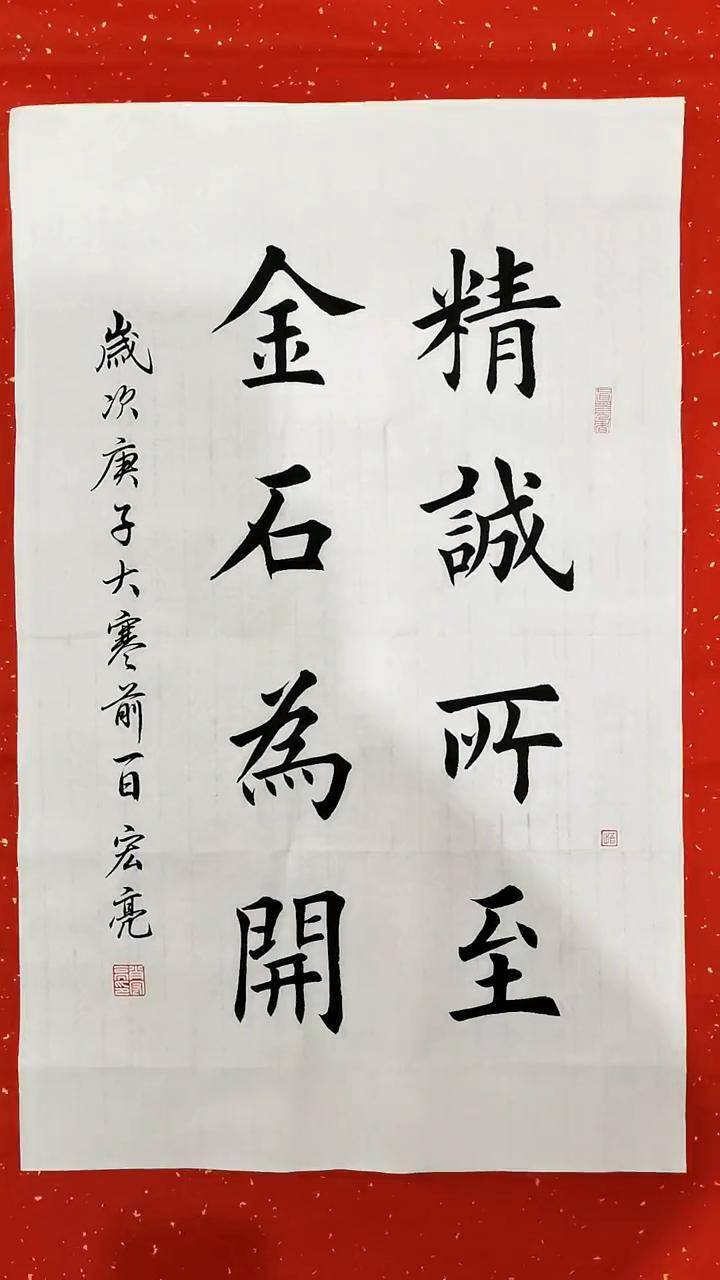 精誠所至
金石為開
歲次庚子大寒前一日宏亮